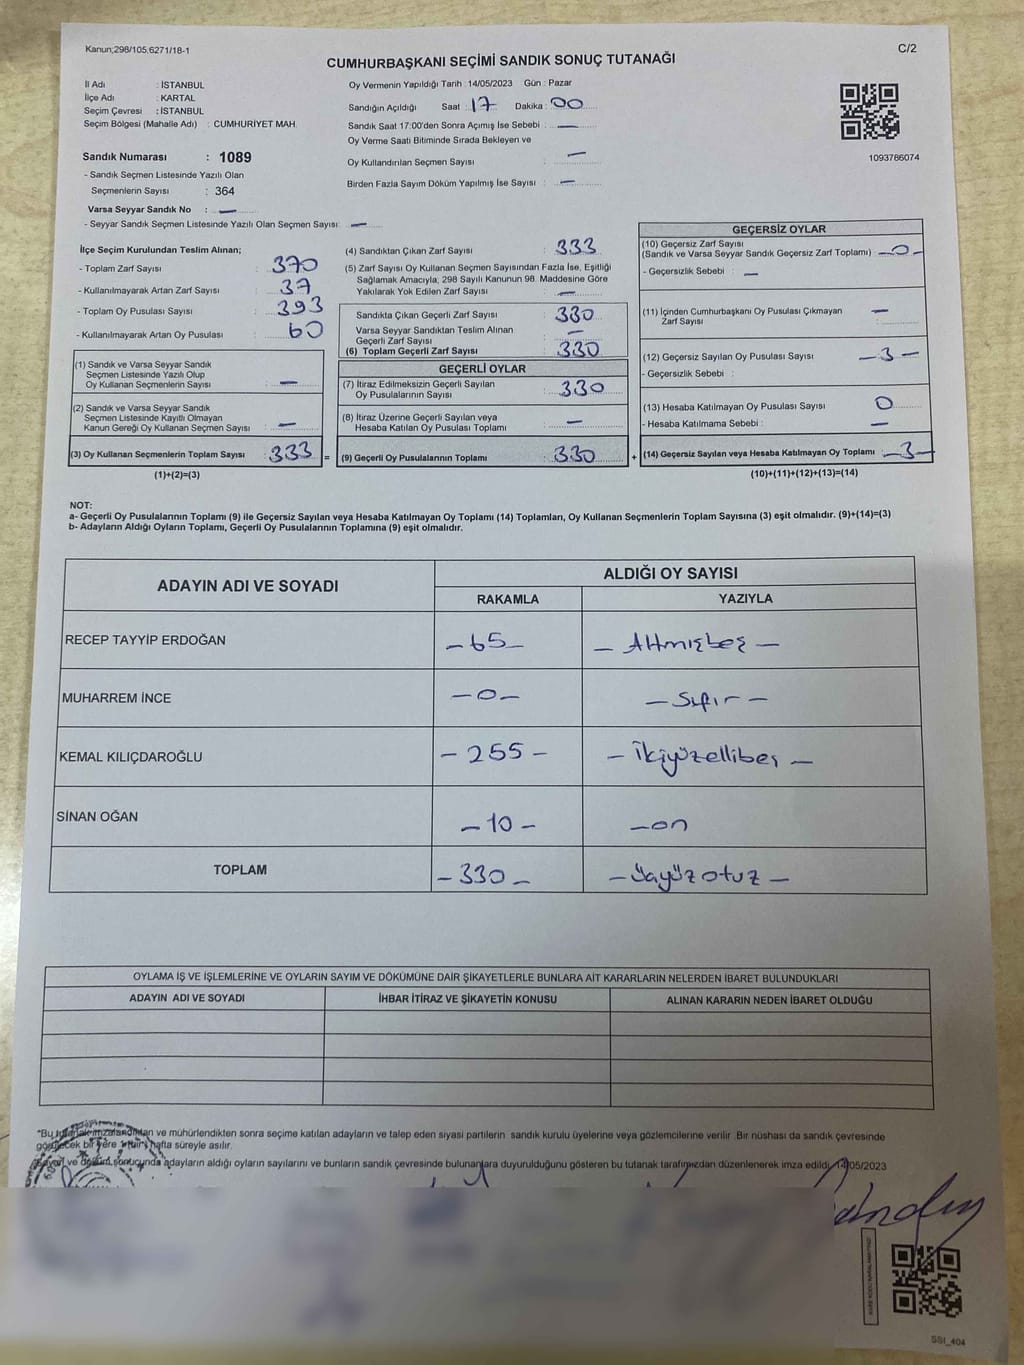 Kanun;298/105,6271/18-1
C/2
CUMHURBAŞKANI SEÇİMİ SANDIK SONUÇ TUTANAĞI
İl Adı : İSTANBUL
İlçe Adı : KARTAL
Seçim Çevresi : İSTANBUL
Seçim Bölgesi (Mahalle Adı) : CUMHURİYET MAH.
Sandık Numarası : 1089
- Sandık Seçmen Listesinde Yazılı Olan
Seçmenlerin Sayısı : 364
Varsa Seyyar Sandık No : —
- Seyyar Sandık Seçmen Listesinde Yazılı Olan Seçmen Sayısı: —
Oy Vermenin Yapıldığı Tarih : 14/05/2023 Gün : Pazar
Sandığın Açıldığı Saat : 17 Dakika : 00
Sandık Saat 17:00'den Sonra Açımış İse Sebebi : —
Oy Verme Saati Bitiminde Sırada Bekleyen ve
Oy Kullandırılan Seçmen Sayısı : —
Birden Fazla Sayım Döküm Yapılmış İse Sayısı : —
1093786074
İlçe Seçim Kurulundan Teslim Alınan;
- Toplam Zarf Sayısı : 370
- Kullanılmayarak Artan Zarf Sayısı : 37
- Toplam Oy Pusulası Sayısı : 393
- Kullanılmayarak Artan Oy Pusulası : 60
(1) Sandık ve Varsa Seyyar Sandık
Seçmen Listesinde Yazılı Olup
Oy Kullanan Seçmenlerin Sayısı : —
(2) Sandık ve Varsa Seyyar Sandık
Seçmen Listesinde Kayıtlı Olmayan
Kanun Gereği Oy Kullanan Seçmen Sayısı : —
(3) Oy Kullanan Seçmenlerin Toplam Sayısı : 333 =
(1)+(2)=(3)
(4) Sandıktan Çıkan Zarf Sayısı : 333
(5) Zarf Sayısı Oy Kullanan Seçmen Sayısından Fazla İse, Eşitliği
Sağlamak Amacıyla; 298 Sayılı Kanunun 98. Maddesine Göre
Yakılarak Yok Edilen Zarf Sayısı : —
Sandıkta Çıkan Geçerli Zarf Sayısı : 330
Varsa Seyyar Sandıktan Teslim Alınan
Geçerli Zarf Sayısı : —
(6) Toplam Geçerli Zarf Sayısı : 330
GEÇERLİ OYLAR
(7) İtiraz Edilmeksizin Geçerli Sayılan
Oy Pusulalarının Sayısı : 330
(8) İtiraz Üzerine Geçerli Sayılan veya
Hesaba Katılan Oy Pusulası Toplamı : —
(9) Geçerli Oy Pusulalarının Toplamı : 330 +
GEÇERSİZ OYLAR
(10) Geçersiz Zarf Sayısı
(Sandık ve Varsa Seyyar Sandık Geçersiz Zarf Toplamı) : —0—
- Geçersizlik Sebebi : —
(11) İçinden Cumhurbaşkanı Oy Pusulası Çıkmayan
Zarf Sayısı : —
(12) Geçersiz Sayılan Oy Pusulası Sayısı : —3—
- Geçersizlik Sebebi :
(13) Hesaba Katılmayan Oy Pusulası Sayısı : 0
- Hesaba Katılmama Sebebi : —
(14) Geçersiz Sayılan veya Hesaba Katılmayan Oy Toplamı : —3—
(10)+(11)+(12)+(13)=(14)
NOT:
a- Geçerli Oy Pusulalarının Toplamı (9) ile Geçersiz Sayılan veya Hesaba Katılmayan Oy Toplamı (14) Toplamları, Oy Kullanan Seçmenlerin Toplam Sayısına (3) eşit olmalıdır. (9)+(14)=(3)
b- Adayların Aldığı Oyların Toplamı, Geçerli Oy Pusulalarının Toplamına (9) eşit olmalıdır.
ADAYIN ADI VE SOYADI
ALDIĞI OY SAYISI
RAKAMLA YAZIYLA
RECEP TAYYİP ERDOĞAN —65— — Altmışbeş —
MUHARREM İNCE —0— — Sıfır —
KEMAL KILIÇDAROĞLU —255— — İkiyüzellibeş —
SİNAN OĞAN —10— —on
TOPLAM —330— —Üçyüzotuz —
OYLAMA İŞ VE İŞLEMLERİNE VE OYLARIN SAYIM VE DÖKÜMÜNE DAİR ŞİKAYETLERLE BUNLARA AİT KARARLARIN NELERDEN İBARET BULUNDUKLARI
ADAYIN ADI VE SOYADI İHBAR İTİRAZ VE ŞİKAYETİN KONUSU ALINAN KARARIN NEDEN İBARET OLDUĞU
"Bu tutanak imzalandıktan ve mühürlendikten sonra seçime katılan adayların ve talep eden siyasi partilerin sandık kurulu üyelerine veya gözlemcilerine verilir .Bir nüshası da sandık çevresinde
görülecek bir yere 1 hafta süreyle asılır.
Sayım ve döküm sonucunda adayların aldığı oyların sayılarını ve bunların sandık çevresinde bulunanlara duyurulduğunu gösteren bu tutanak tarafımızdan düzenlenerek imza edildi. 14/05/2023
SSI_404